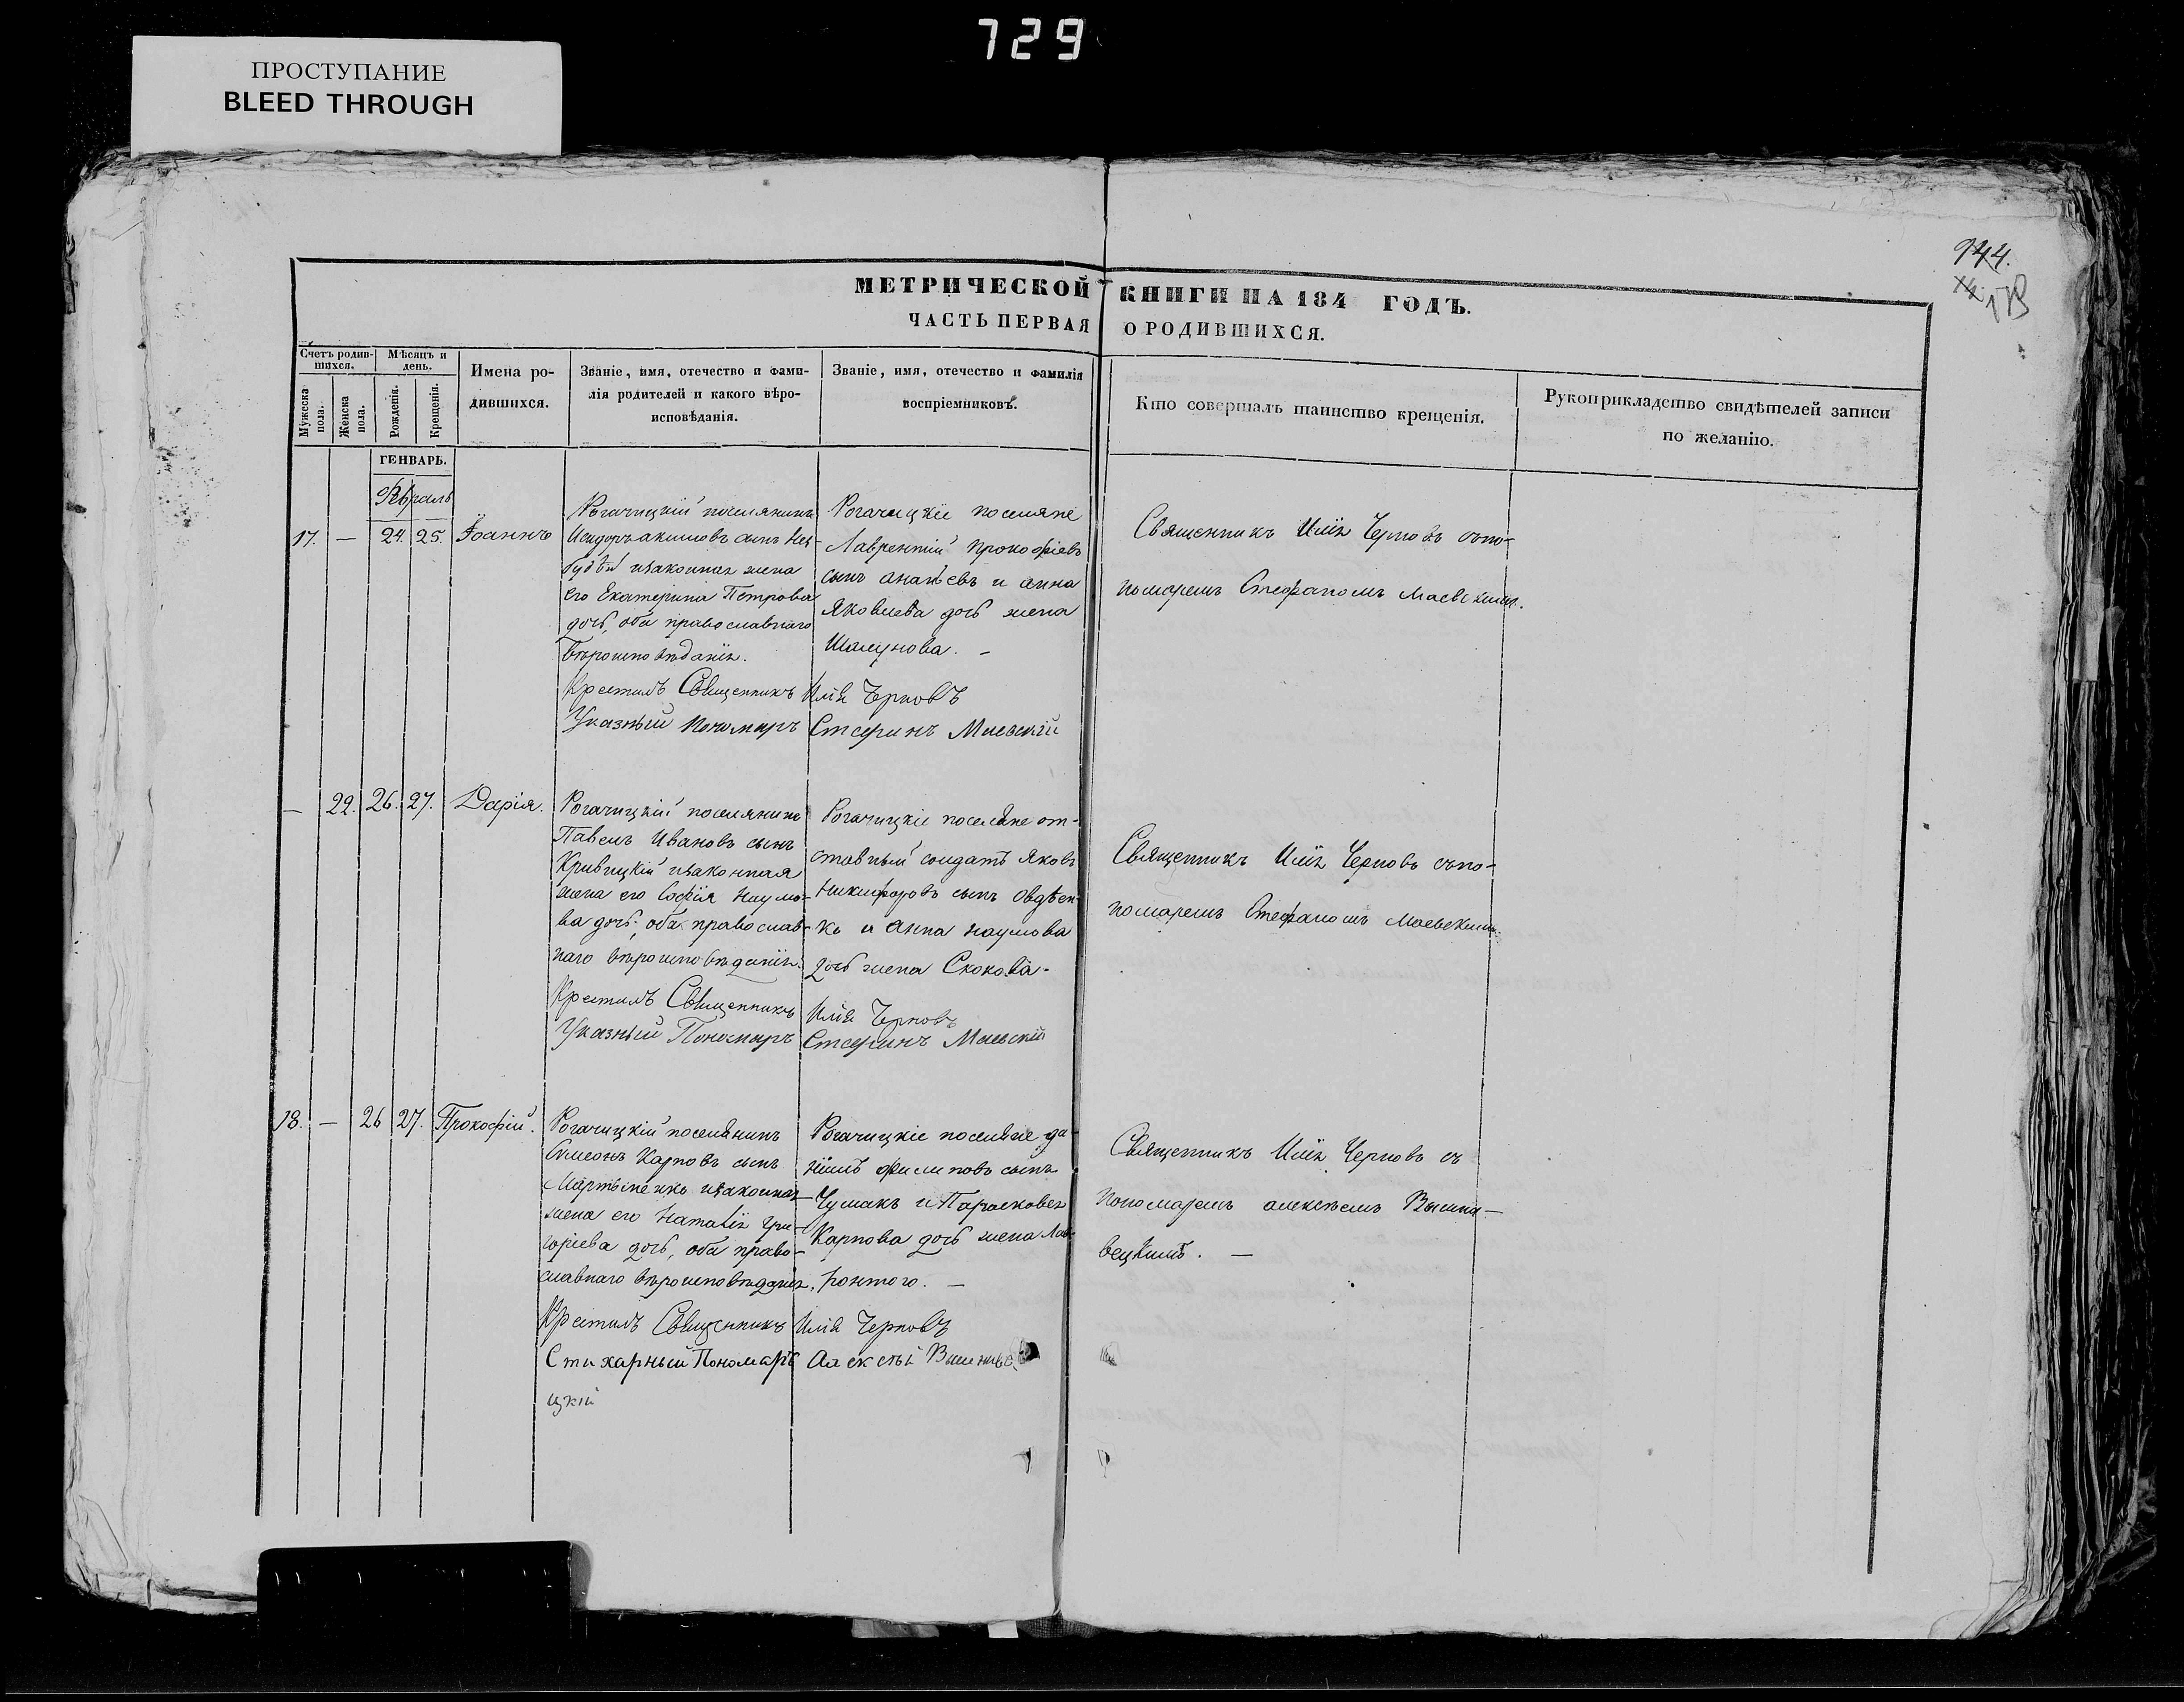 729
ПРОСТУПАНИЕ
BLEED THROUGH
944.
МЕТРИЧЕСКОЙ КНИГИ НА 184 ГОДЪ.
ЧАСТЬ ПЕРВАЯ О РОДИВШИХСЯ.
Счетъ родив-
шихся.
Мѣсяцъ и
день.
Мужеска
пола.
Женска
пола.
Рожденія.
Крещенія.
Имена ро-
дившихся.
Званіе, имя, отечество и фами-
лія родителей и какого вѣро-
исповѣданія.
Званіе, имя, отечество и фамилія
воспріемниковъ.
Кто совершалъ таинство крещенія.
Рукоприкладство свидѣтелей записи
по желанію.
ГЕНВАРЬ.
Февраль
17. — 24. 25. Іоаннъ
Рогачицкій поселянинъ
Исидоръ акимовъ сынъ
изаконная жена
его Екатерина Петрова
дочь, оба православнаго
вѣроисповѣданія.
Рогачицкіе поселяне
Лаврентій прокофіевъ
сынъ ананьевъ и анна
Яковлева дочь жена
Шалунова. —
Священникъ Илія Черновъ съпо-
номаремъ Стефаномъ Маевскимъ.
Крестилъ Священникъ Илія Черновъ
Указный Пономарь Стефанъ Маевскій
— 22. 26. 27. Дарія.
Рогачицкій поселянинъ
Павелъ Ивановъ сынъ
Кривицкій изаконная
жена его Софія Наумо-
ва дочь; оба православ-
наго вѣроисповѣданія.
Рогачицкіе поселяне от-
ставный солдатъ Яковъ
Никифоровъ сынъ Овдѣен-
ко и Анна наумова
дочь жена Скокова.
Священникъ Илія Черновъ съпо-
номаремъ Стефаномъ Маевскимъ.
Крестилъ Священникъ Илія Черновъ
Указный Пономарь Стефанъ Маевскій
18. — 26 27. Прокофій.
Рогачицкій поселянинъ
Симеонъ Карповъ сынъ
Мартыненко изаконная
жена его Наталія гри-
горіева дочь, оба право-
славнаго вѣроисповѣданія.
Рогачицкіе поселяне да-
ніилъ филиповъ сынъ
Чумакъ и Парасковея
Карпова дочь жена
Священникъ Илія Черновъ съ
пономаремъ алексѣемъ Вишни-
вецкимъ. —
Крестилъ Священникъ Илія Черновъ
Стихарный Пономарь Алексѣй Вишниве-
цкій